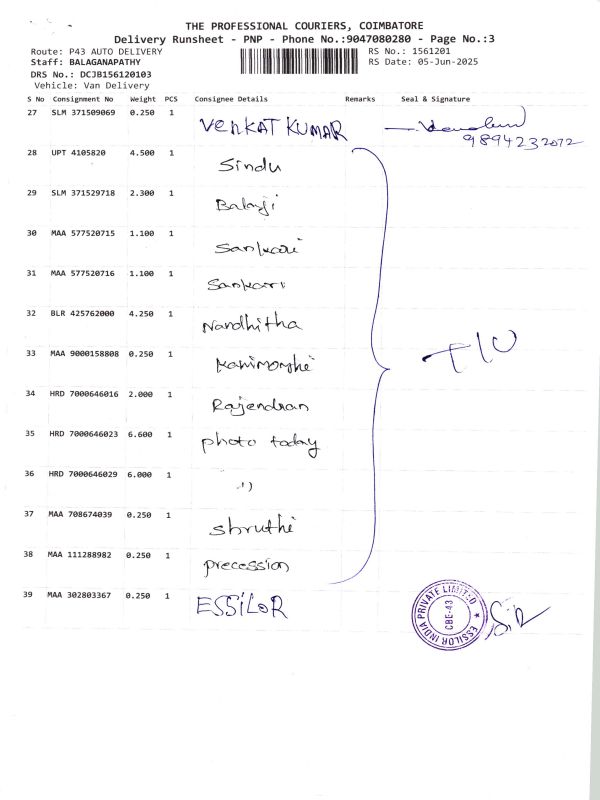 THE PROFESSIONAL COURIERS, COIMBATORE
Delivery Runsheet - PNP - Phone No.:9047080280 - Page No.:3
Route: P43 AUTO DELIVERY
RS No.: 1561201
Staff: BALAGANAPATHY
RS Date: 05-Jun-2025
DRS No.: DCJB156120103
Vehicle: Van Delivery
S No Consignment No Weight PCS Consignee Details Remarks Seal & Signature
27 SLM 371509069 0.250 1 VENKAT KUMAR
9894232072
28 UPT 4105820 4.500 1 Sindu
29 SLM 371529718 2.300 1 Balaji
30 MAA 577520715 1.100 1 Sankari
31 MAA 577520716 1.100 1 Sankari
32 BLR 425762000 4.250 1 Nandhitha
33 MAA 9000158808 0.250 1
34 HRD 7000646016 2.000 1 Rajendran
35 HRD 7000646023 6.600 1 photo today
36 HRD 7000646029 6.000 1 ,,
37 MAA 708674039 0.250 1 shruthi
38 MAA 111288982 0.250 1 precession
39 MAA 302803367 0.250 1 ESSILOR
ESSILOR INDIA PRIVATE LIMITED
CBE-43